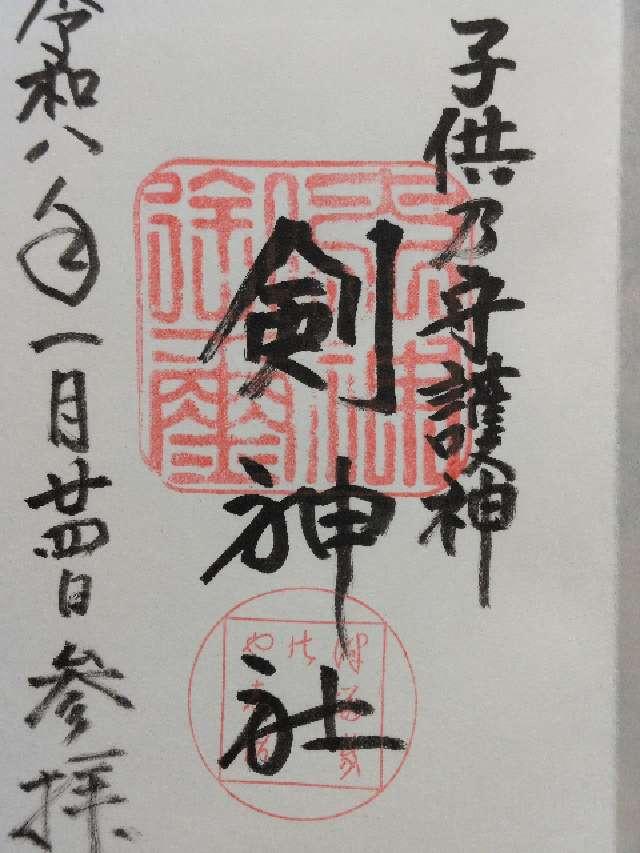 子供乃守護神
剣神社
令和八年一月廿四日参拝